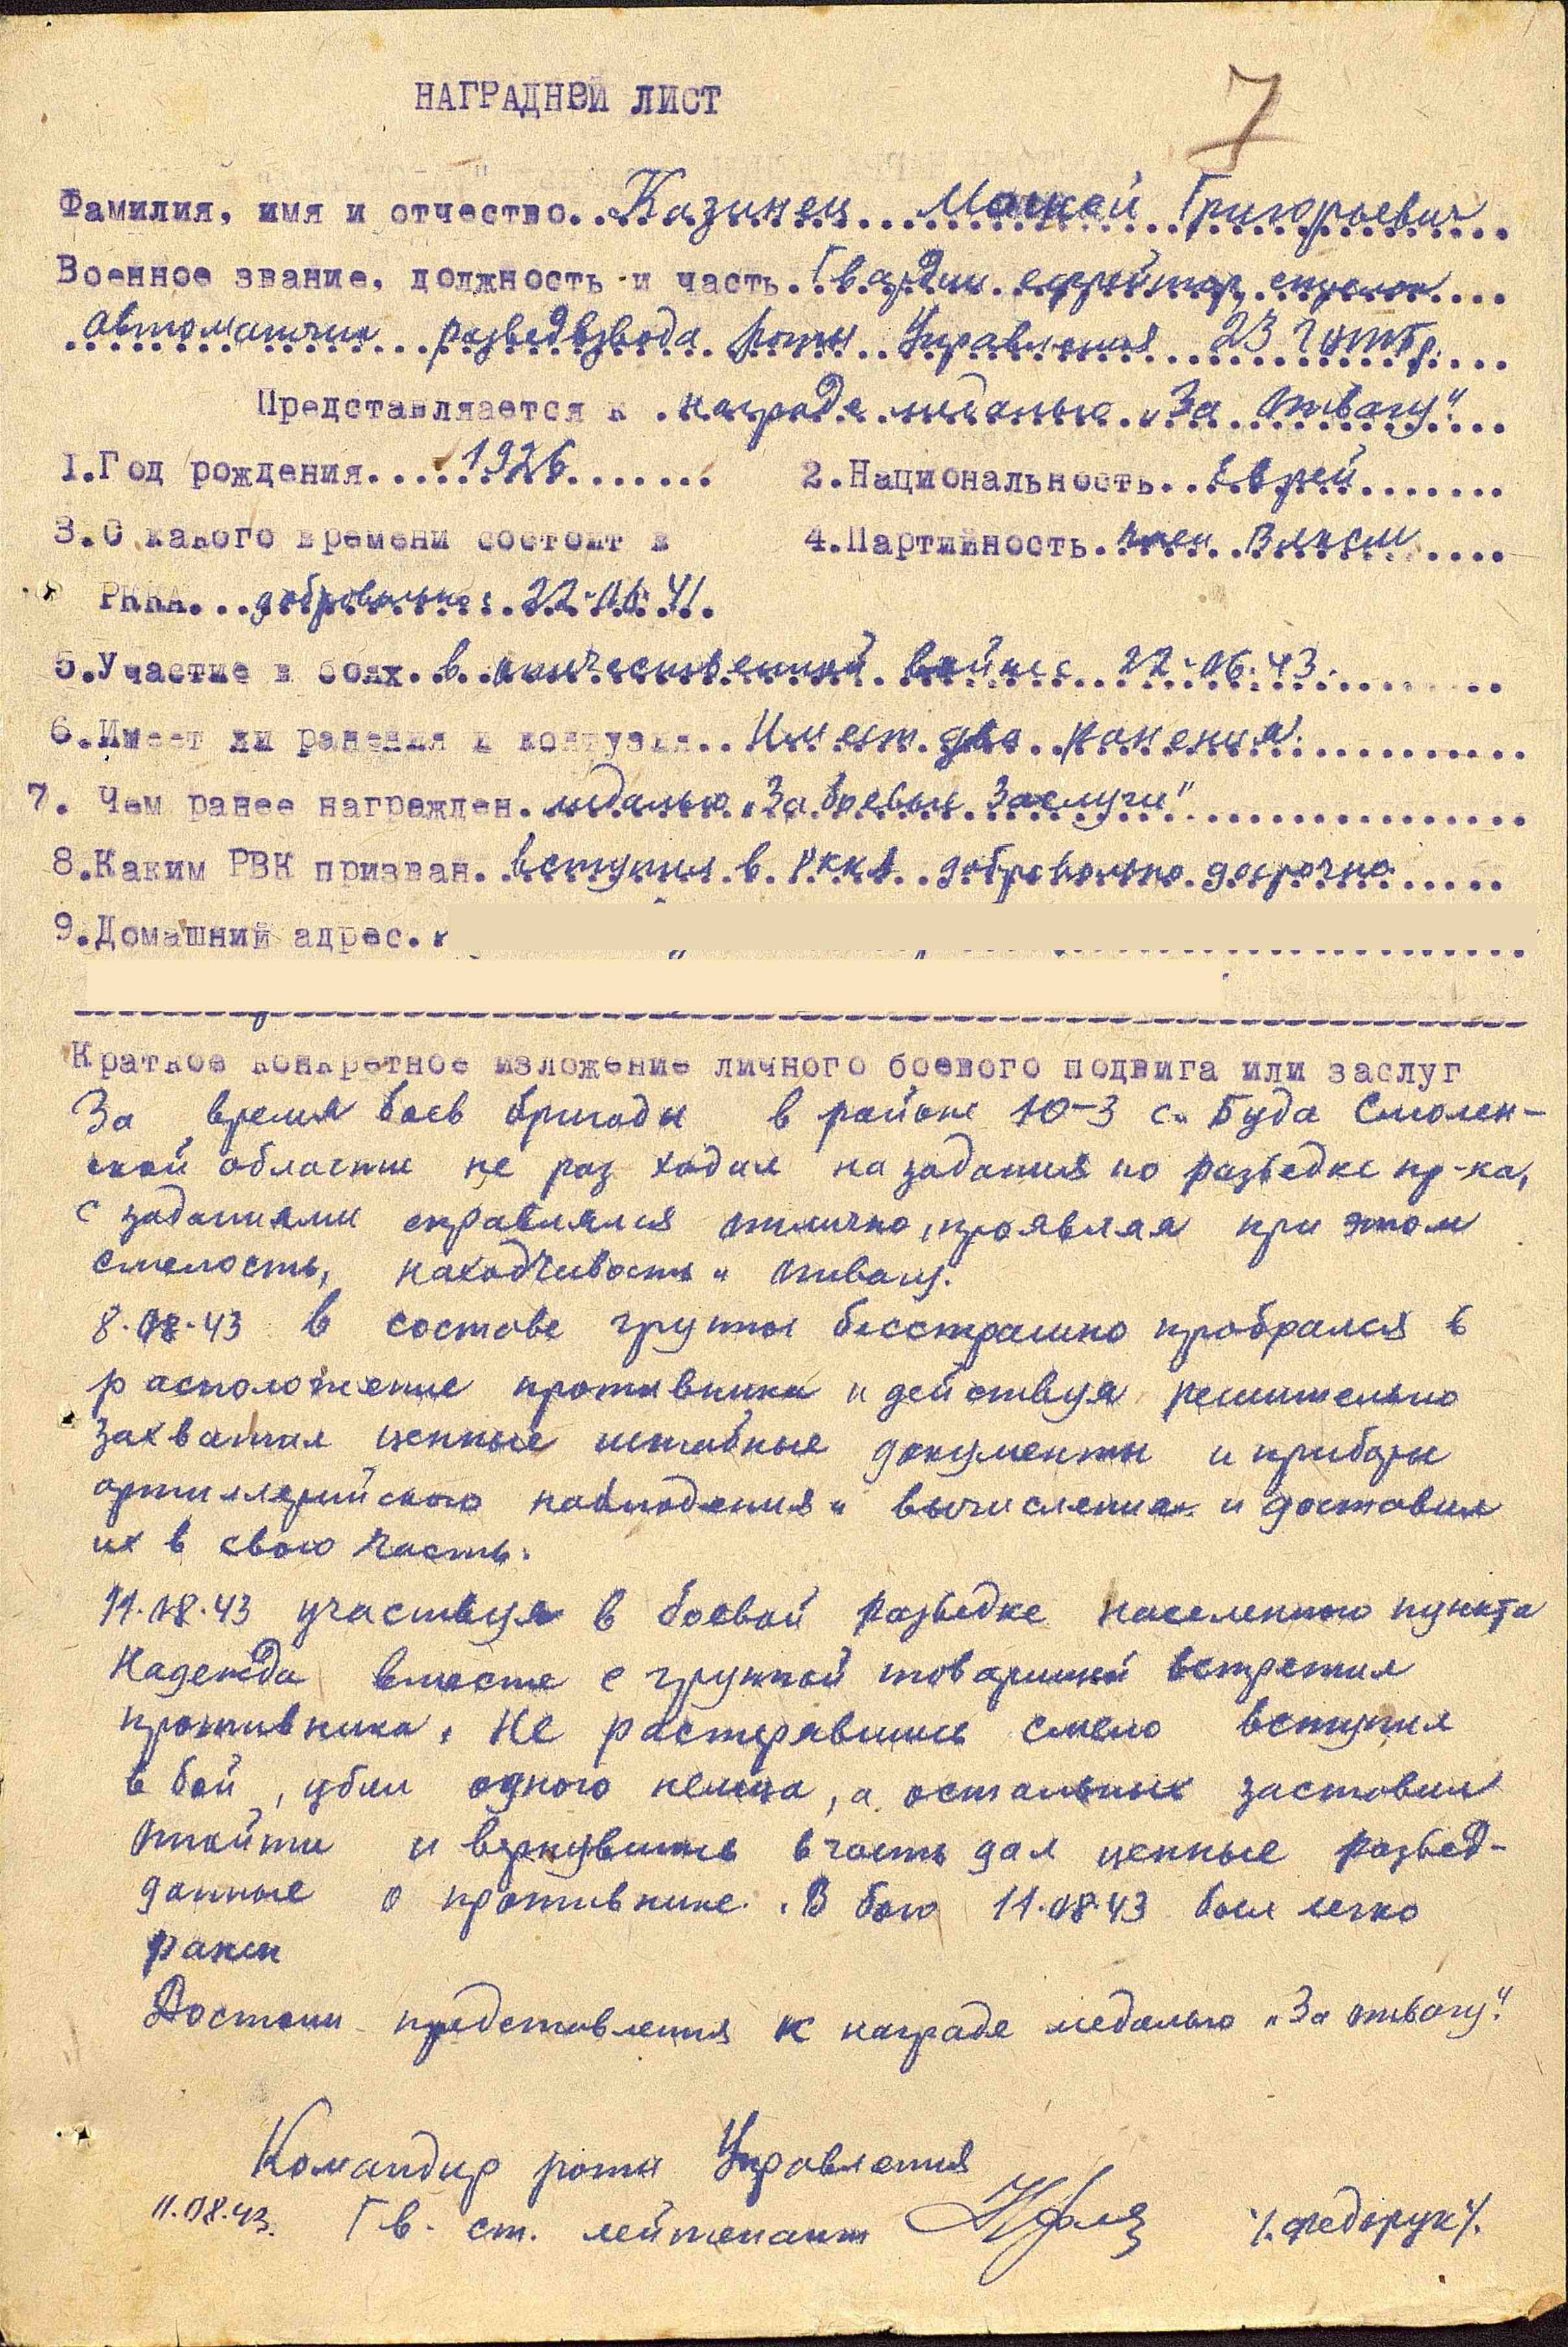 НАГРАДНОЙ ЛИСТ
7
Фамилия, имя и отчество..Казинец Моисей Григорьевич
Военное звание, должность и часть.Гвардии ефрейтор стрелок
автоматчик разведвзвода роты Управления 23
Представляется к награде медалью „За Отвагу".
1.Год рождения.....1926.......
2.Национальность..Еврей.......
3.С какого времени состоит в
4.Партийность.член ВЛКСМ....
РККА...добровольно с 22-06-41.
5.Участие в боях.в отечественной войне с 22-06-43.
6.Имеет ли ранения и контузии..Имеет два ранения.
7. Чем ранее награжден.медалью „За боевые Заслуги"
8.Каким РВК призван.вступил в РККА добровольно досрочно
9.Домашний адрес.
Краткое конкретное изложение личного боевого подвига или заслуг
За время боев бригады в районе Ю-З с. Буда Смолен-
ской области не раз ходил на задания по разведке пр-ка,
с заданиями справлялся отлично, проявляя при этом
смелость, находчивость и отвагу.
8.08.43 в составе группы бесстрашно пробрался в
расположение противника и действуя решительно
захватил ценные штабные документы и приборы
артиллерийского наблюдения и вычисления и доставил
их в свою часть.
11.08.43 участвуя в боевой разведке населенного пункта
Надежда вместе с группой товарищей встретил
противника. Не растерявшись смело вступил
в бой, убил одного немца, а остальных заставил
отойти и вернувшись в часть дал ценные развед-
данные о противнике. В бою 11.08.43 был легко
ранен
Достоин представления к награде медалью „За отвагу".
Командир роты Управления
11.08.43. Гв. ст. лейтенант /.Федорук/.